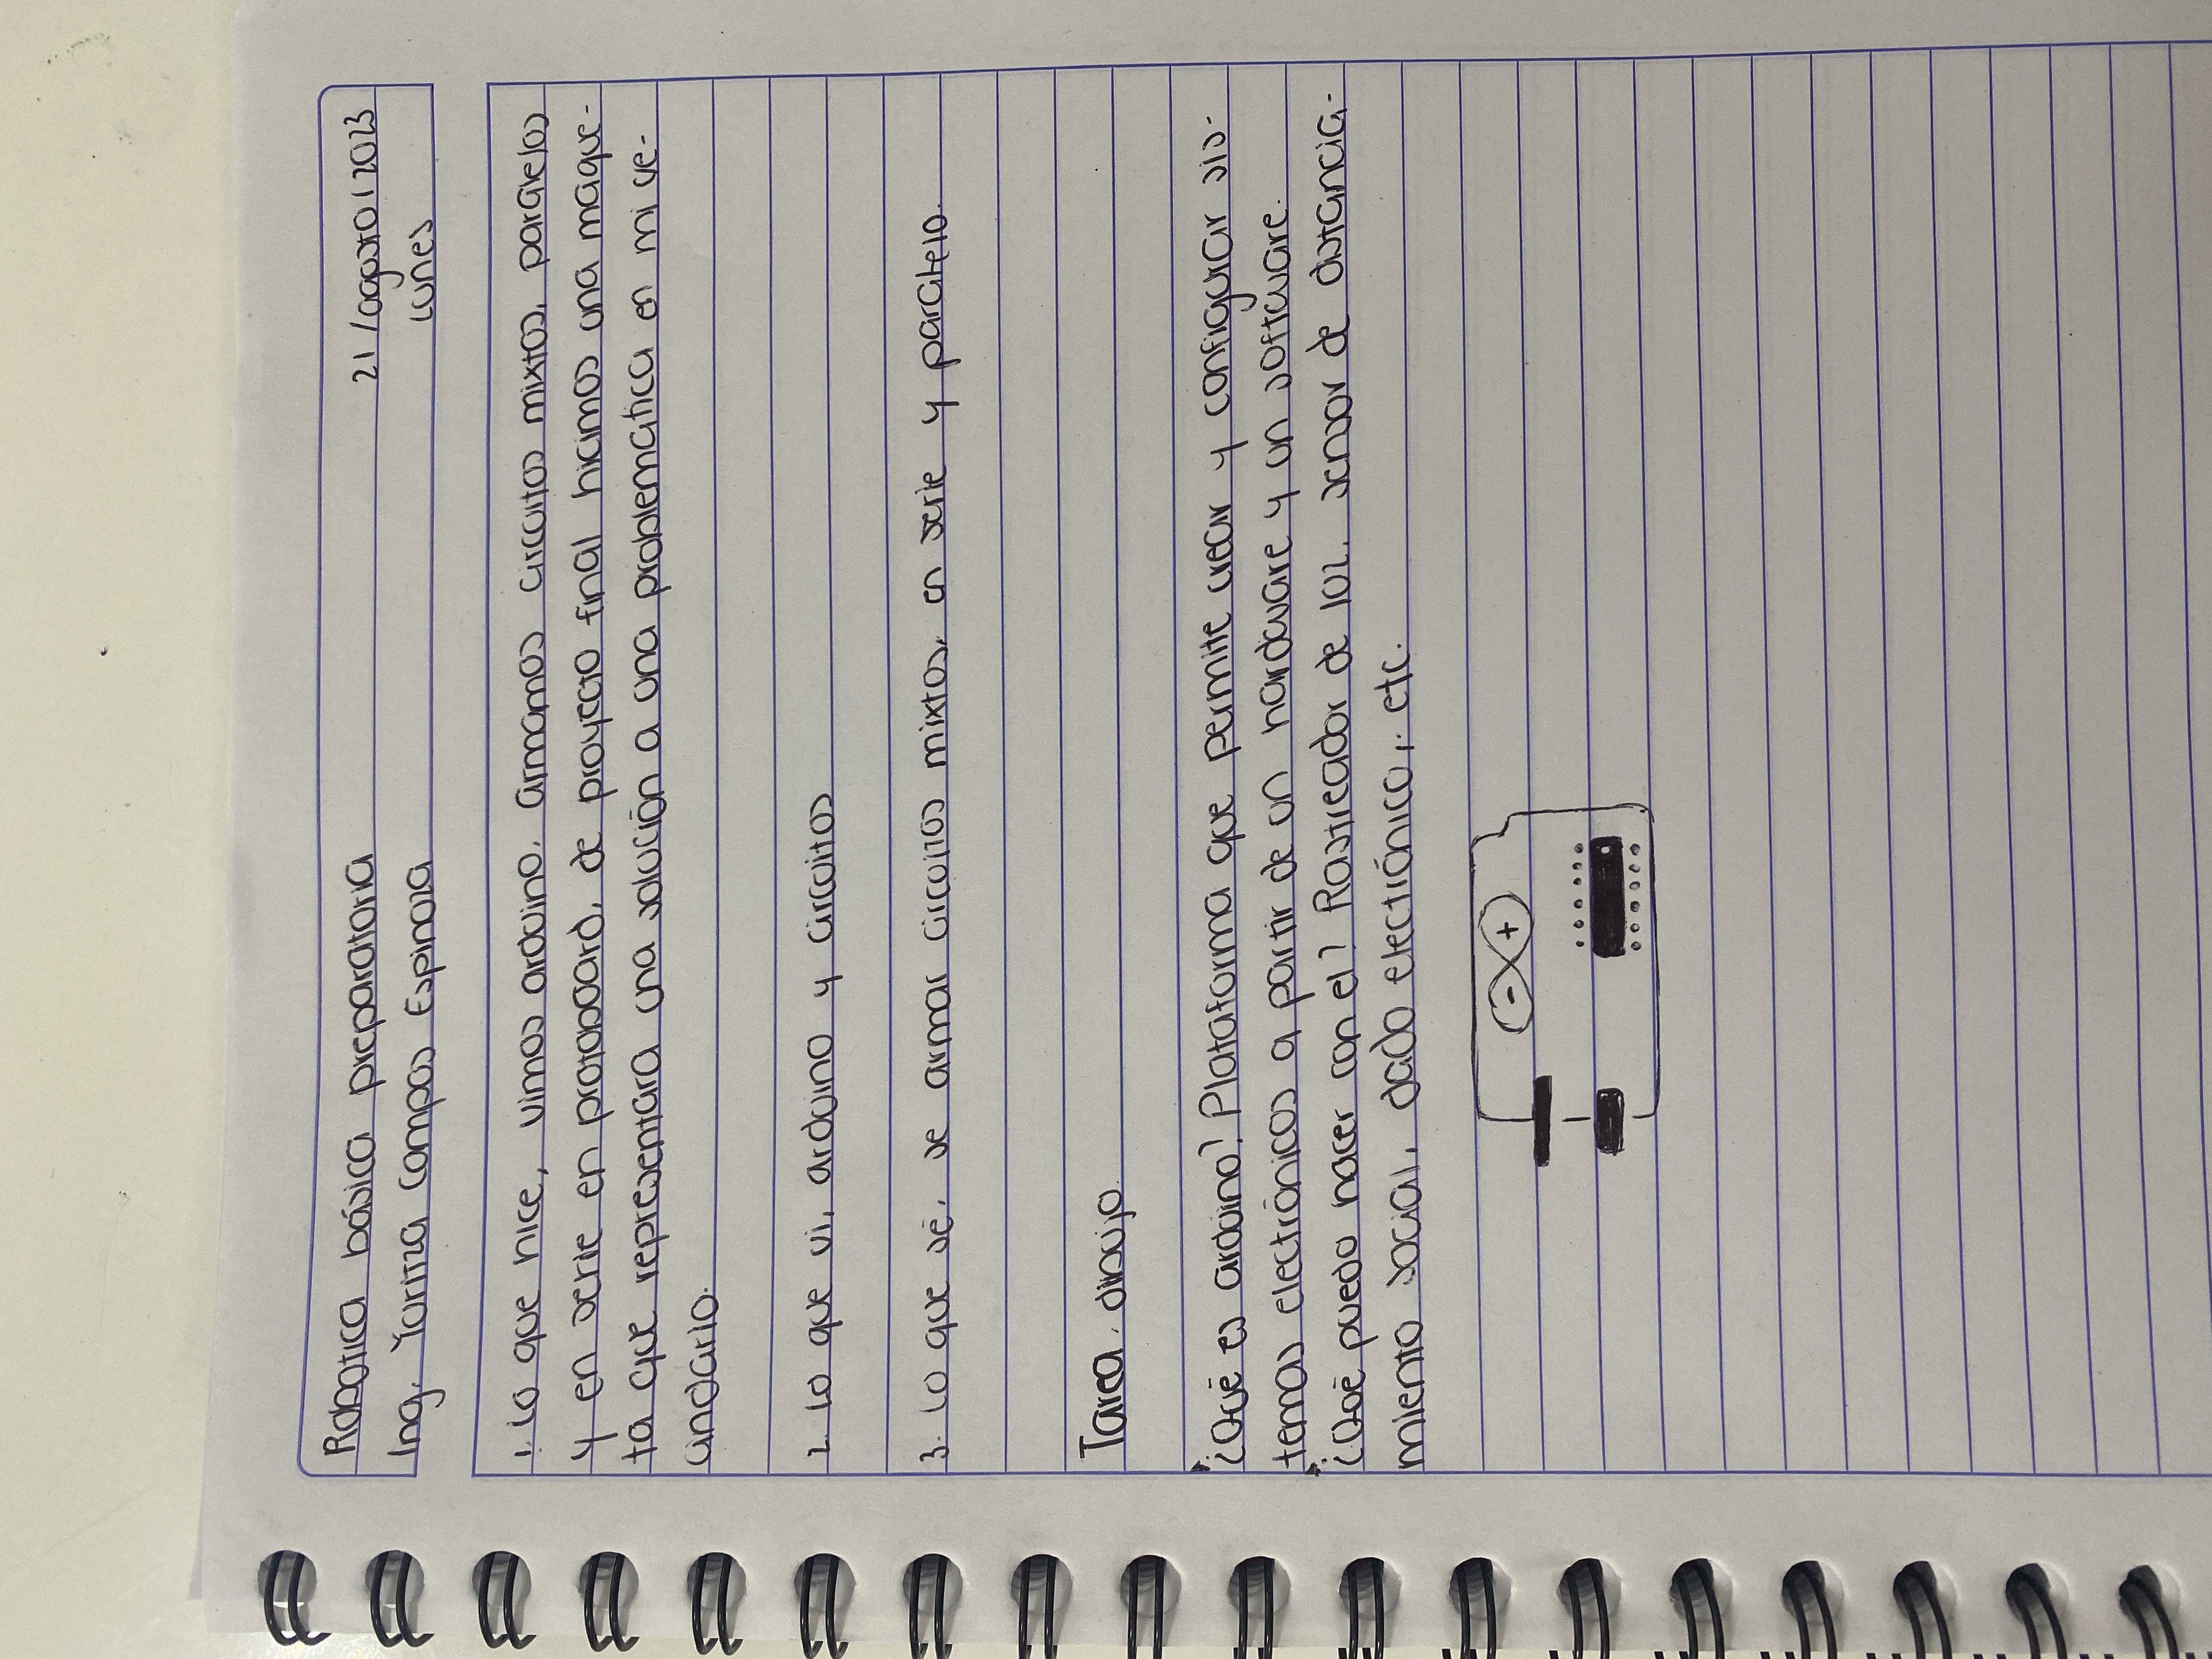 Robótica básica preparatoria 21/agosto/2023
Ing. Yaritza Campos Espinoza lunes
1. Lo que hice, vimos arduino, armamos circuitos mixtos, paralelos
y en serie en protoboard, de proyecto final hicimos una maque-
ta que representara una solución a una problematica en mi ve-
cindario.
2. Lo que vi, arduino y circuitos
3. Lo que sé, se armar circuitos mixtos, en serie y paralelo.
Tarea, dibujo.
¿Qué es arduino? Plataforma que permite crear y configurar sis-
temas electrónicos a partir de un hardware y un software.
¿Qué puedo hacer con el? Rastreador de luz, sensor de distancia-
miento social, dado electrónico, etc.
- +